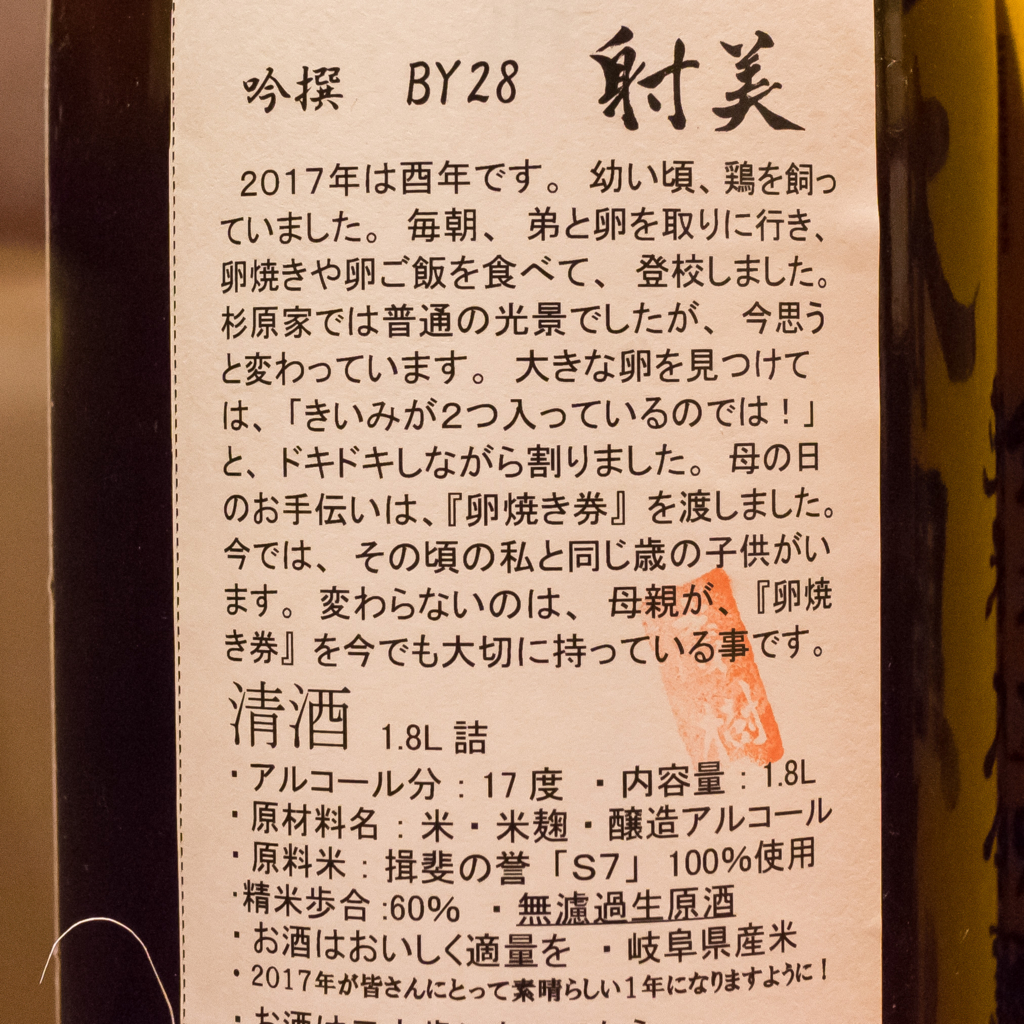 吟撰 BY28 射美
2017年は酉年です。幼い頃、鶏を飼っ
ていました。毎朝、弟と卵を取りに行き、
卵焼きや卵ご飯を食べて、登校しました。
杉原家では普通の光景でしたが、今思う
と変わっています。大きな卵を見つけて
は、「きいみが2つ入っているのでは！」
と、ドキドキしながら割りました。母の日
のお手伝いは、『卵焼き券』を渡しました。
今では、その頃の私と同じ歳の子供がい
ます。変わらないのは、母親が、『卵焼
き券』を今でも大切に持っている事です。
清酒 1.8L 詰
・アルコール分：17度 ・内容量：1.8L
・原材料名：米・米麹・醸造アルコール
・原料米：揖斐の誉「S7」100%使用
・精米歩合:60% ・無濾過生原酒
・お酒はおいしく適量を ・岐阜県産米
・2017年が皆さんにとって素晴らしい1年になりますように！